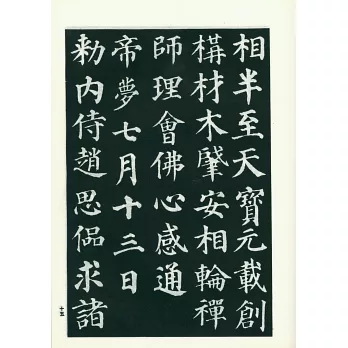 相半至天寶元載創
構材木肇安相輪禪
師理會佛心感通
帝夢七月十三日
勑内侍趙思偘求諸
十五